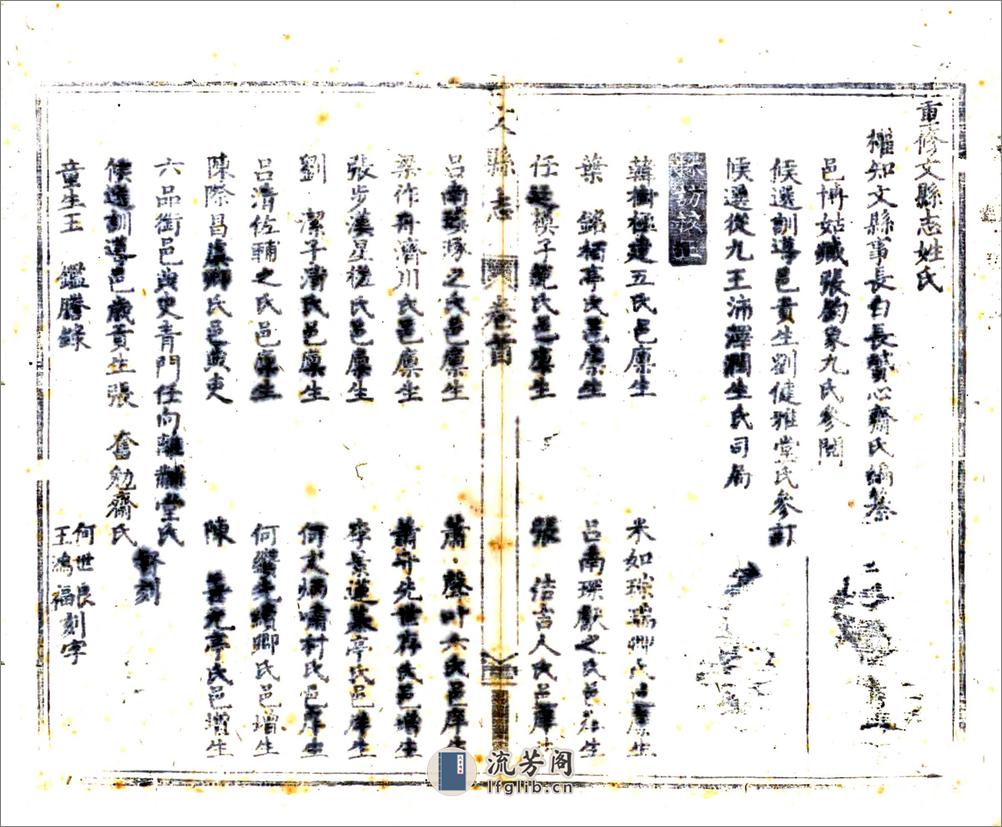 重修文縣志姓氏
權知文縣事長白長贇心齋氏編纂
邑博姑臧張鈞象九氏參閱
候選訓導邑貢生劉健雅堂氏參訂
候選從九王沛澤潤生氏司局
採訪校正
韓樹極建五氏邑廪生
米如琮瑞卿氏邑廪生
葉 銘栢亭氏邑廪生
呂南琛獻之氏邑庠生
任 模子範氏邑庠生
張 佶吉人氏邑庠生
文縣志 卷首
呂南璜琢之氏邑廪生
蕭 聲叶六氏邑庠生
梁作舟濟川氏邑廪生
蕭 先世存氏邑增生
張步漢星槎氏邑廪生
李景蓮 亭氏邑庠生
劉 潔子清氏邑廪生
何文炳蔚村氏邑庠生
呂清佐輔之氏邑廪生
何繼先續卿氏邑增生
陳際昌 卿氏邑典吏
陳 善元亭氏邑增生
六品銜邑典史青門任向離黼堂氏
候選訓導邑歲貢生張 奮勉齋氏
督刻
童生王 鑑謄錄
何世良
王鴻福刻字
流芳阁
lfglib.cn